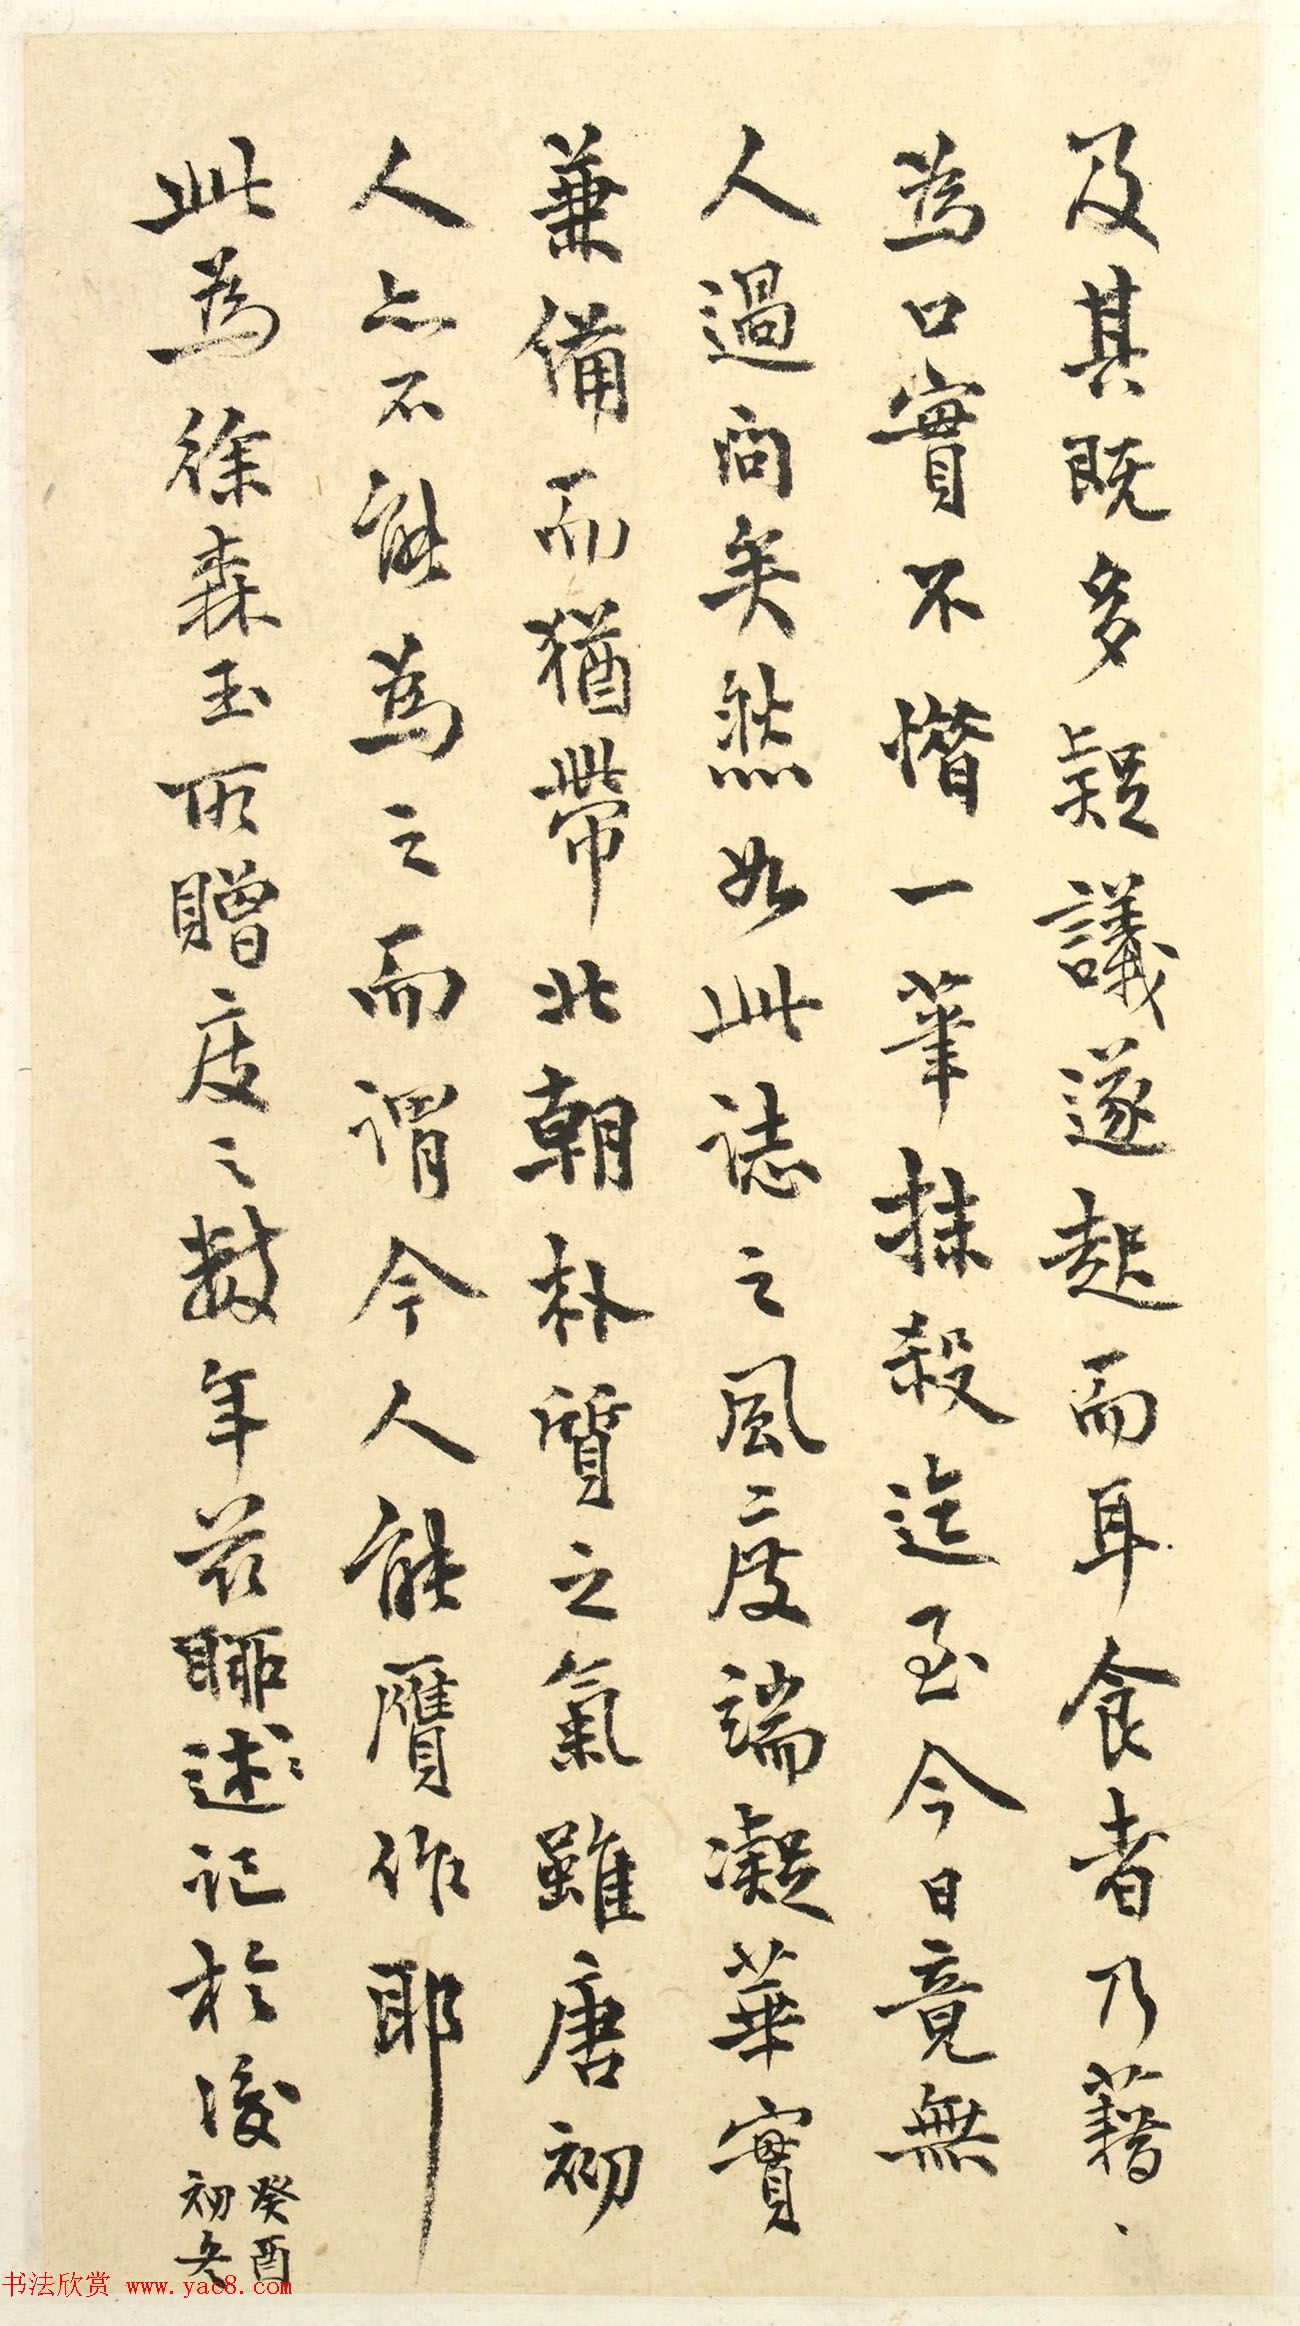 及其既多疑議遂起而耳食者乃藉
為口實不惜一筆抹殺迄至今日竟無
人過問矣然如此誌之風度端凝華實
兼備而猶帶北朝朴質之氣雖唐初
人亦不能為之而謂今人能贋作耶
此為徐森玉所贈庋之數年茲聊述記於後
癸酉
初冬
书法欣赏 www.yac8.com